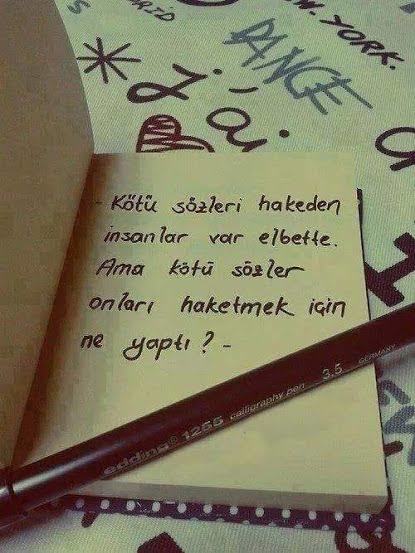 RID
W. YORK.
DANCE
j'ai
- Kötü sözleri hakeden
insanlar var elbette.
Ama kötü sözler
onları haketmek için
ne yaptı? -
edding® 1255 calligraphy pen 3.5 GERMANY